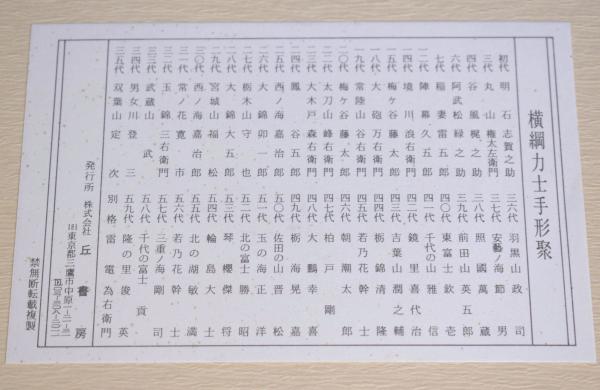 横綱力士手形聚
初代 明石志賀之助
三代 丸山権太左衛門
四代 谷風梶之助
六代 阿武松緑之助
七代 稲妻雷五郎
一二代 陣幕久五郎
一四代 境川浪右衛門
一五代 梅ヶ谷藤太郎
一八代 大砲万右衛門
一九代 常陸山谷右衛門
二〇代 梅ヶ谷藤太郎
二二代 太刀山峰右衛門
二三代 大木戸森右衛門
二四代 鳳谷五郎
二五代 西ノ海嘉治郎
二六代 大錦卯一郎
二七代 栃木山守也
二八代 大錦大五郎
二九代 宮城山福松
三〇代 西ノ海嘉治郎
三一代 常ノ花寛市
三二代 玉錦三右衛門
三三代 武蔵山武
三四代 男女川登三
三五代 双葉山定次
三六代 羽黒山政司
三七代 安藝ノ海節男
三八代 照國萬蔵
三九代 前田山英五郎
四〇代 東富士欽壱
四一代 千代の山雅信
四二代 鏡里喜代治
四三代 吉葉山潤之輔
四四代 栃錦清隆
四五代 若乃花幹士
四六代 朝潮太郎
四七代 柏戸剛
四八代 大鵬幸喜
四九代 栃ノ海晃嘉
五〇代 佐田の山晋松
五一代 玉の海正洋
五二代 北の富士勝昭
五三代 琴櫻傑将
五四代 輪島大士
五五代 北の湖敏満
五六代 若乃花幹士
五七代 三重ノ海剛司
五八代 千代の富士貢
五九代 隆の里俊英
別格 雷電為右衛門
発行所 株式会社 丘書房
東京都三鷹市中原
禁無断転載複製